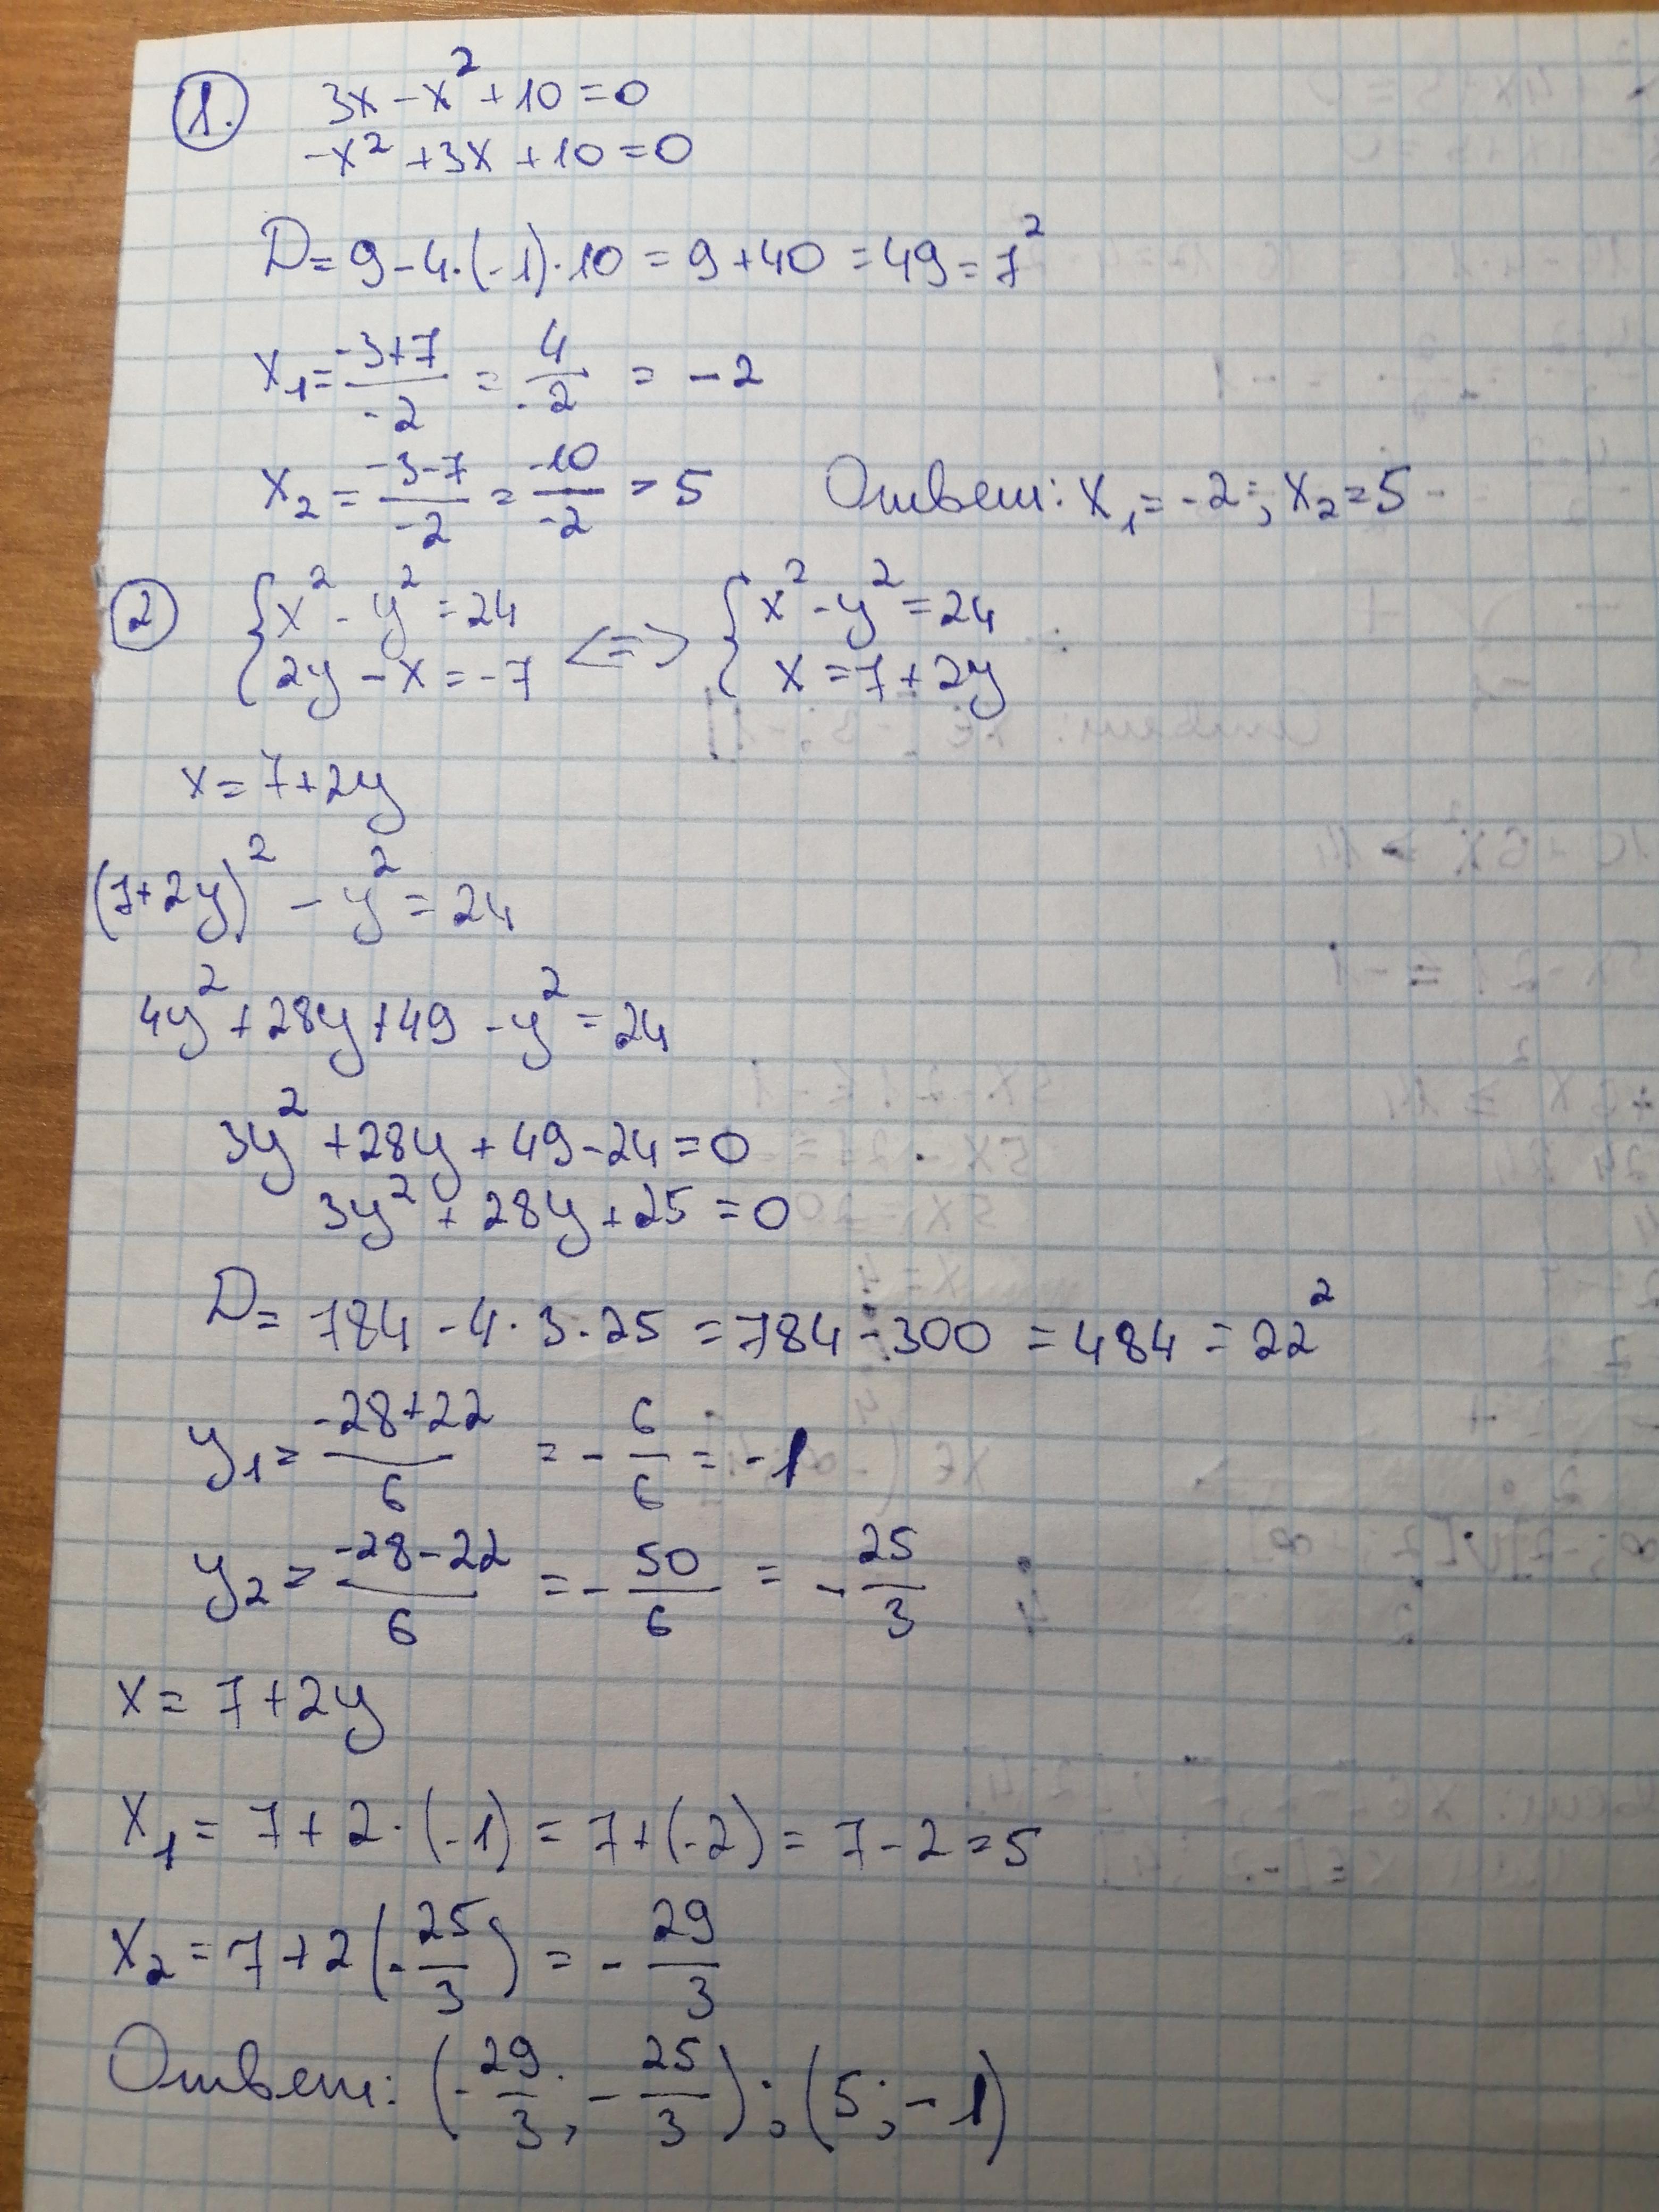 1. 3x - x² + 10 = 0
-x² + 3x + 10 = 0
D = 9 - 4·(-1)·10 = 9 + 40 = 49 = 7²
x₁ = (-3+7)/(-2) = 4/(-2) = -2
x₂ = (-3-7)/(-2) = (-10)/(-2) = 5 Ответ: x₁ = -2; x₂ = 5
2 { x² - y² = 24 <=> { x² - y² = 24
2y - x = -7 x = 7 + 2y
x = 7 + 2y
(7+2y)² - y² = 24
4y² + 28y + 49 - y² = 24
3y² + 28y + 49 - 24 = 0
3y² + 28y + 25 = 0
D = 784 - 4·3·25 = 784 - 300 = 484 = 22²
y₁ = (-28+22)/6 = -6/6 = -1
y₂ = (-28-22)/6 = -50/6 = -25/3
x = 7 + 2y
x₁ = 7 + 2·(-1) = 7 + (-2) = 7 - 2 = 5
x₂ = 7 + 2(-25/3) = -29/3
Ответ: (-29/3; -25/3); (5; -1)